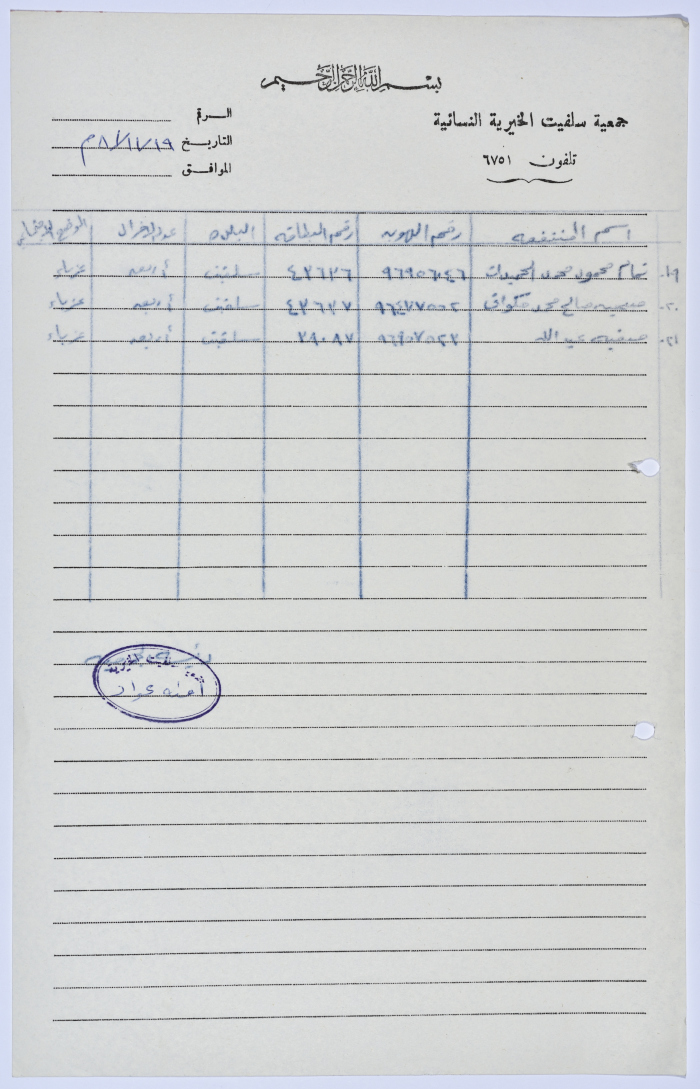 بسم الله الرحمن الرحيم
جمعية سلفيت الخيرية النسائية
تلفون ٦٧٥١
الرقم
التاريخ ٨/١١/١٩م
الموافق
اسم المنتفعه رقم الهويه رقم البطاقه البلده عدد الافراد الوضع الاجتماعي
١٩- تمام محمود محمد الحميدات ٩٦٩٥٦٠٤٦ ٤٢٦٢٦ سلفيت أربعه عزباء
٢٠- صالح محمد ٤٢٦٢٧ سلفيت أربعه عزباء
٢١- صفيه عبد الله ٢٩٠٨٧ سلفيت أربعه عزباء
رئيسة
أمنه عواد